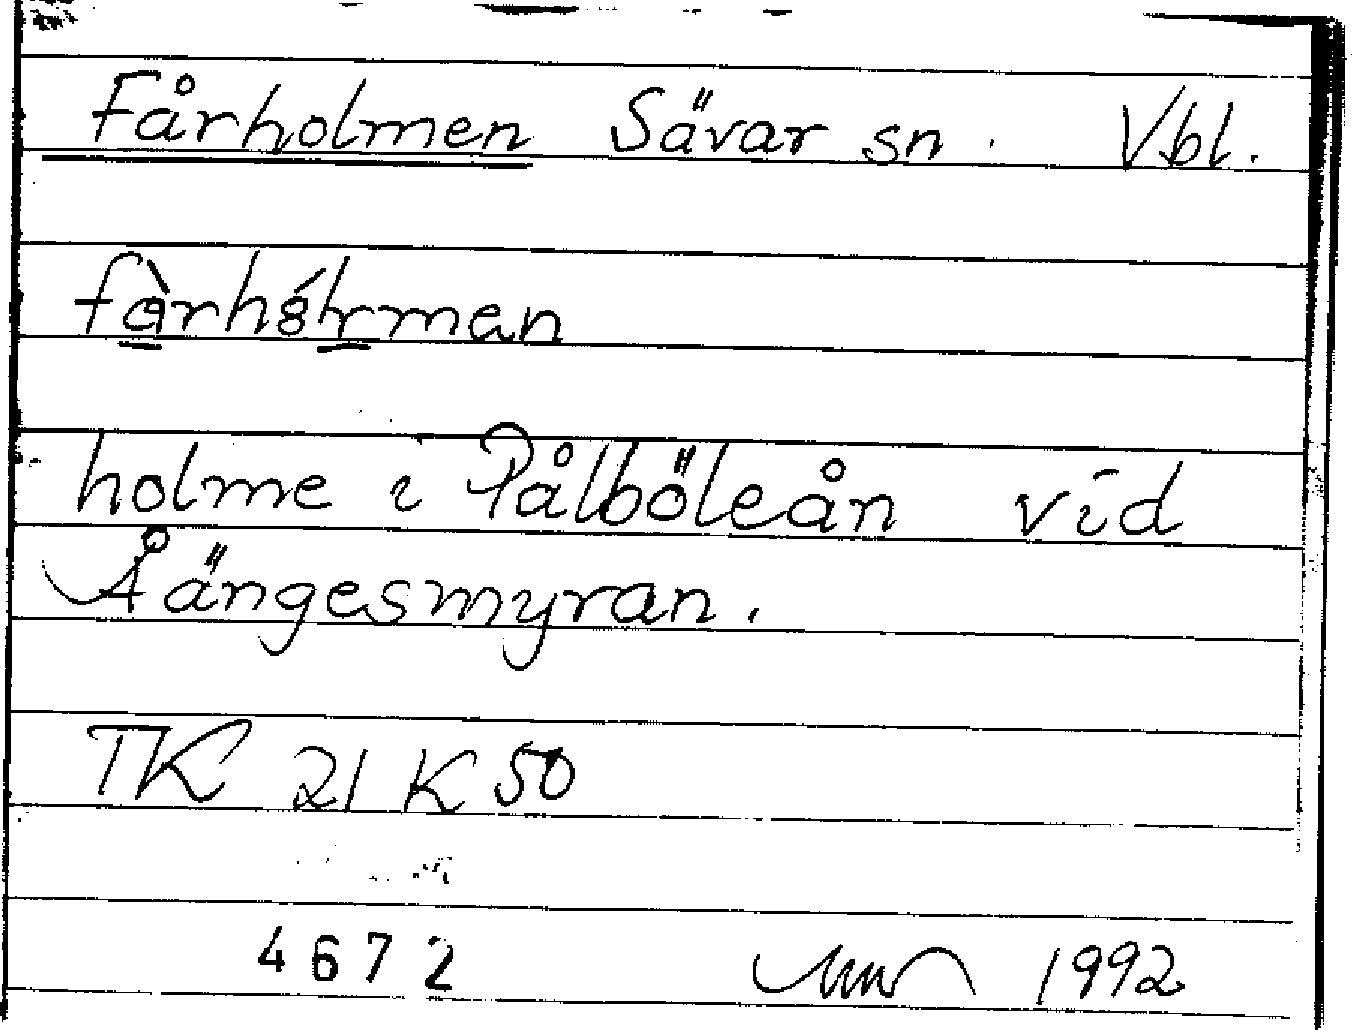 Fårholmen Sävar sn. Vbl.
holme i Pålböleån vid
Åängesmyran.
TK 21 K 50
4672 1992